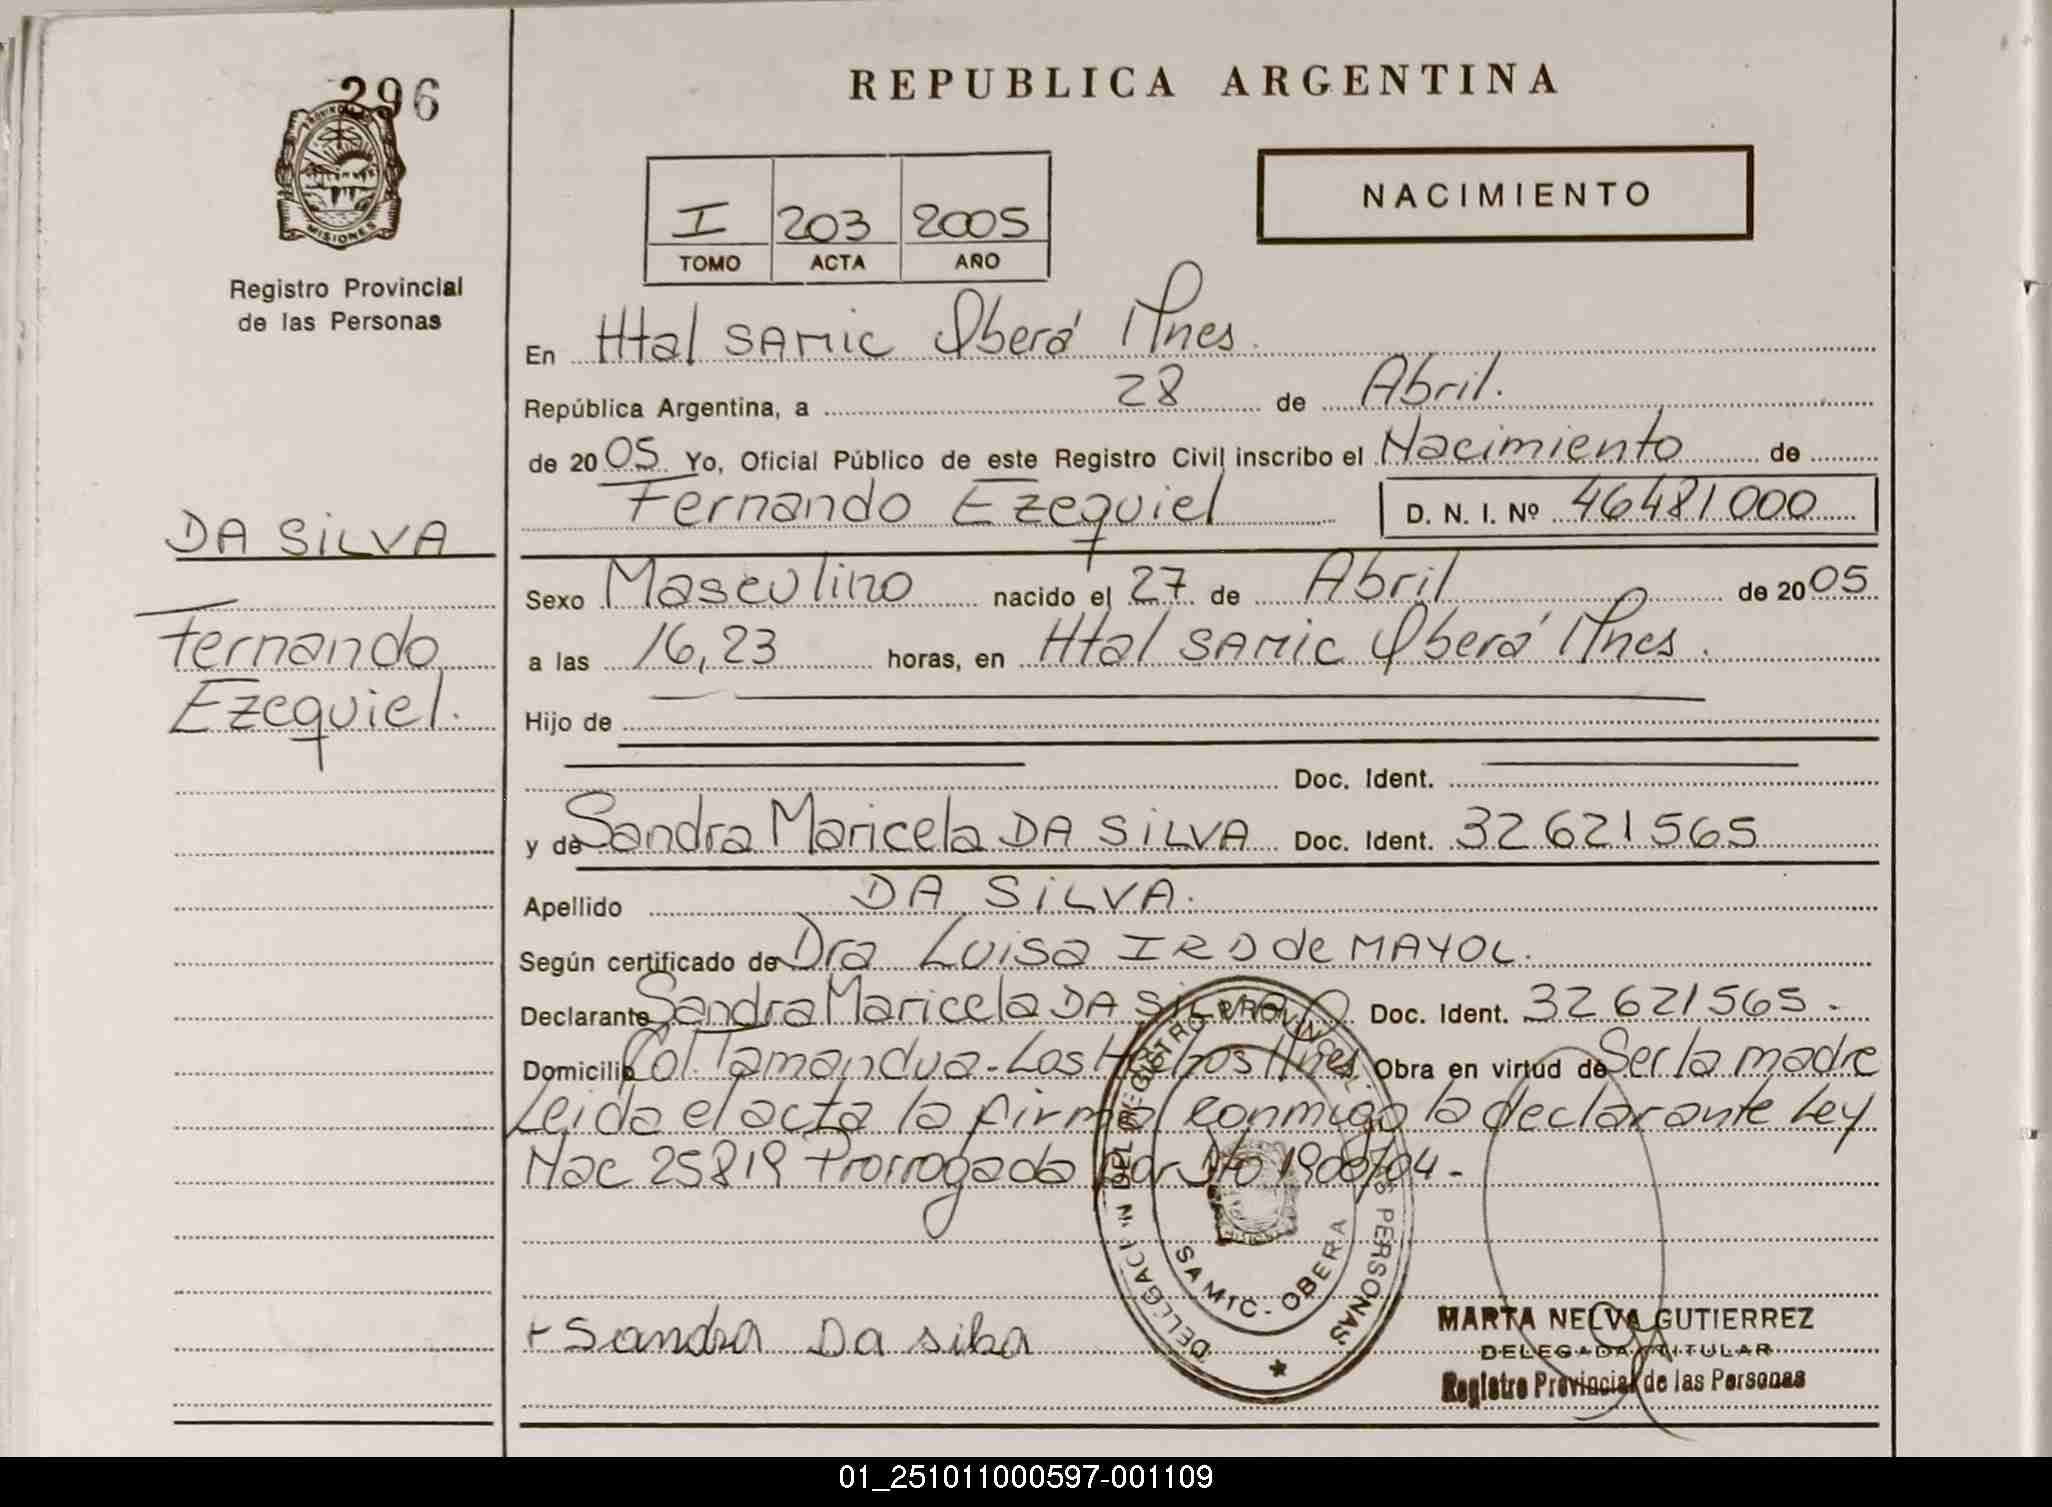 296
PROVINCIA DE
MISIONES
Registro Provincial
de las Personas
DA SILVA
Fernando
Ezequiel.
REPUBLICA ARGENTINA
I 203 2005
TOMO ACTA AÑO
NACIMIENTO
En Htal SAMIC Oberá Mnes.
República Argentina, a 28 de Abril.
de 2005 Yo, Oficial Público de este Registro Civil inscribo el Nacimiento de
Fernando Ezequiel D. N. I. Nº 46481000
Sexo Masculino nacido el 27 de Abril de 2005
a las 16,23 horas, en Htal SAMIC Oberá Mnes.
Hijo de
Doc. Ident.
y de Sandra Maricela DA SILVA Doc. Ident. 32621565
Apellido DA SILVA.
Según certificado de Dra Luisa IRD de MAYOL.
Declarante Sandra Maricela DA SILVA Doc. Ident. 32621565.-
Domicilio Col. Tamandua - Los Helechos Mnes. Obra en virtud de Ser la madre
Leida el acta la firma conmigo la declarante Ley
Nac 25819 Prorrogada por Dto 1900/04-
DELEGACION DEL REGISTRO PROVINCIAL DE LAS PERSONAS
SAMIC - OBERA
+ Sandra Da silba
MARTA NELVA GUTIERREZ
DELEGADA TITULAR
Registro Provincial de las Personas
01_251011000597-001109